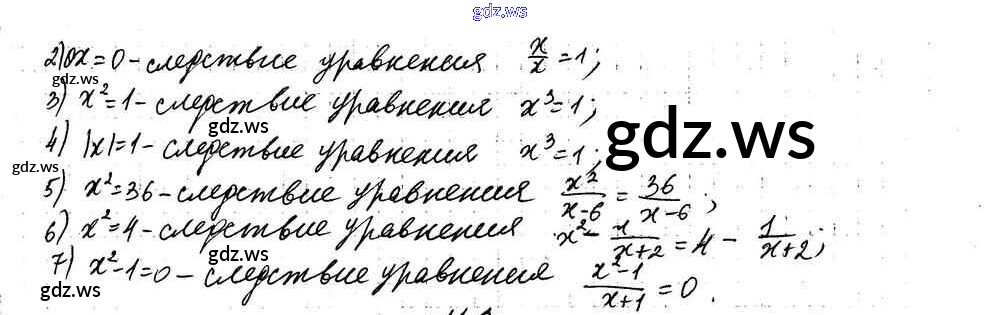 gdz.ws
2) 0x = 0 - следствие уравнения x/x = 1;
gdz.ws
3) x² = 1 - следствие уравнения x³ = 1;
gdz.ws
gdz.ws
4) |x| = 1 - следствие уравнения x³ = 1;
gdz.ws
5) x² = 36 - следствие уравнения x²/(x-6) = 36/(x-6);
6) x² = 4 - следствие уравнения x² - 1/(x+2) = 4 - 1/(x+2);
gdz.ws
7) x² - 1 = 0 - следствие уравнения (x²-1)/(x+1) = 0.
gdz.ws
gdz.ws